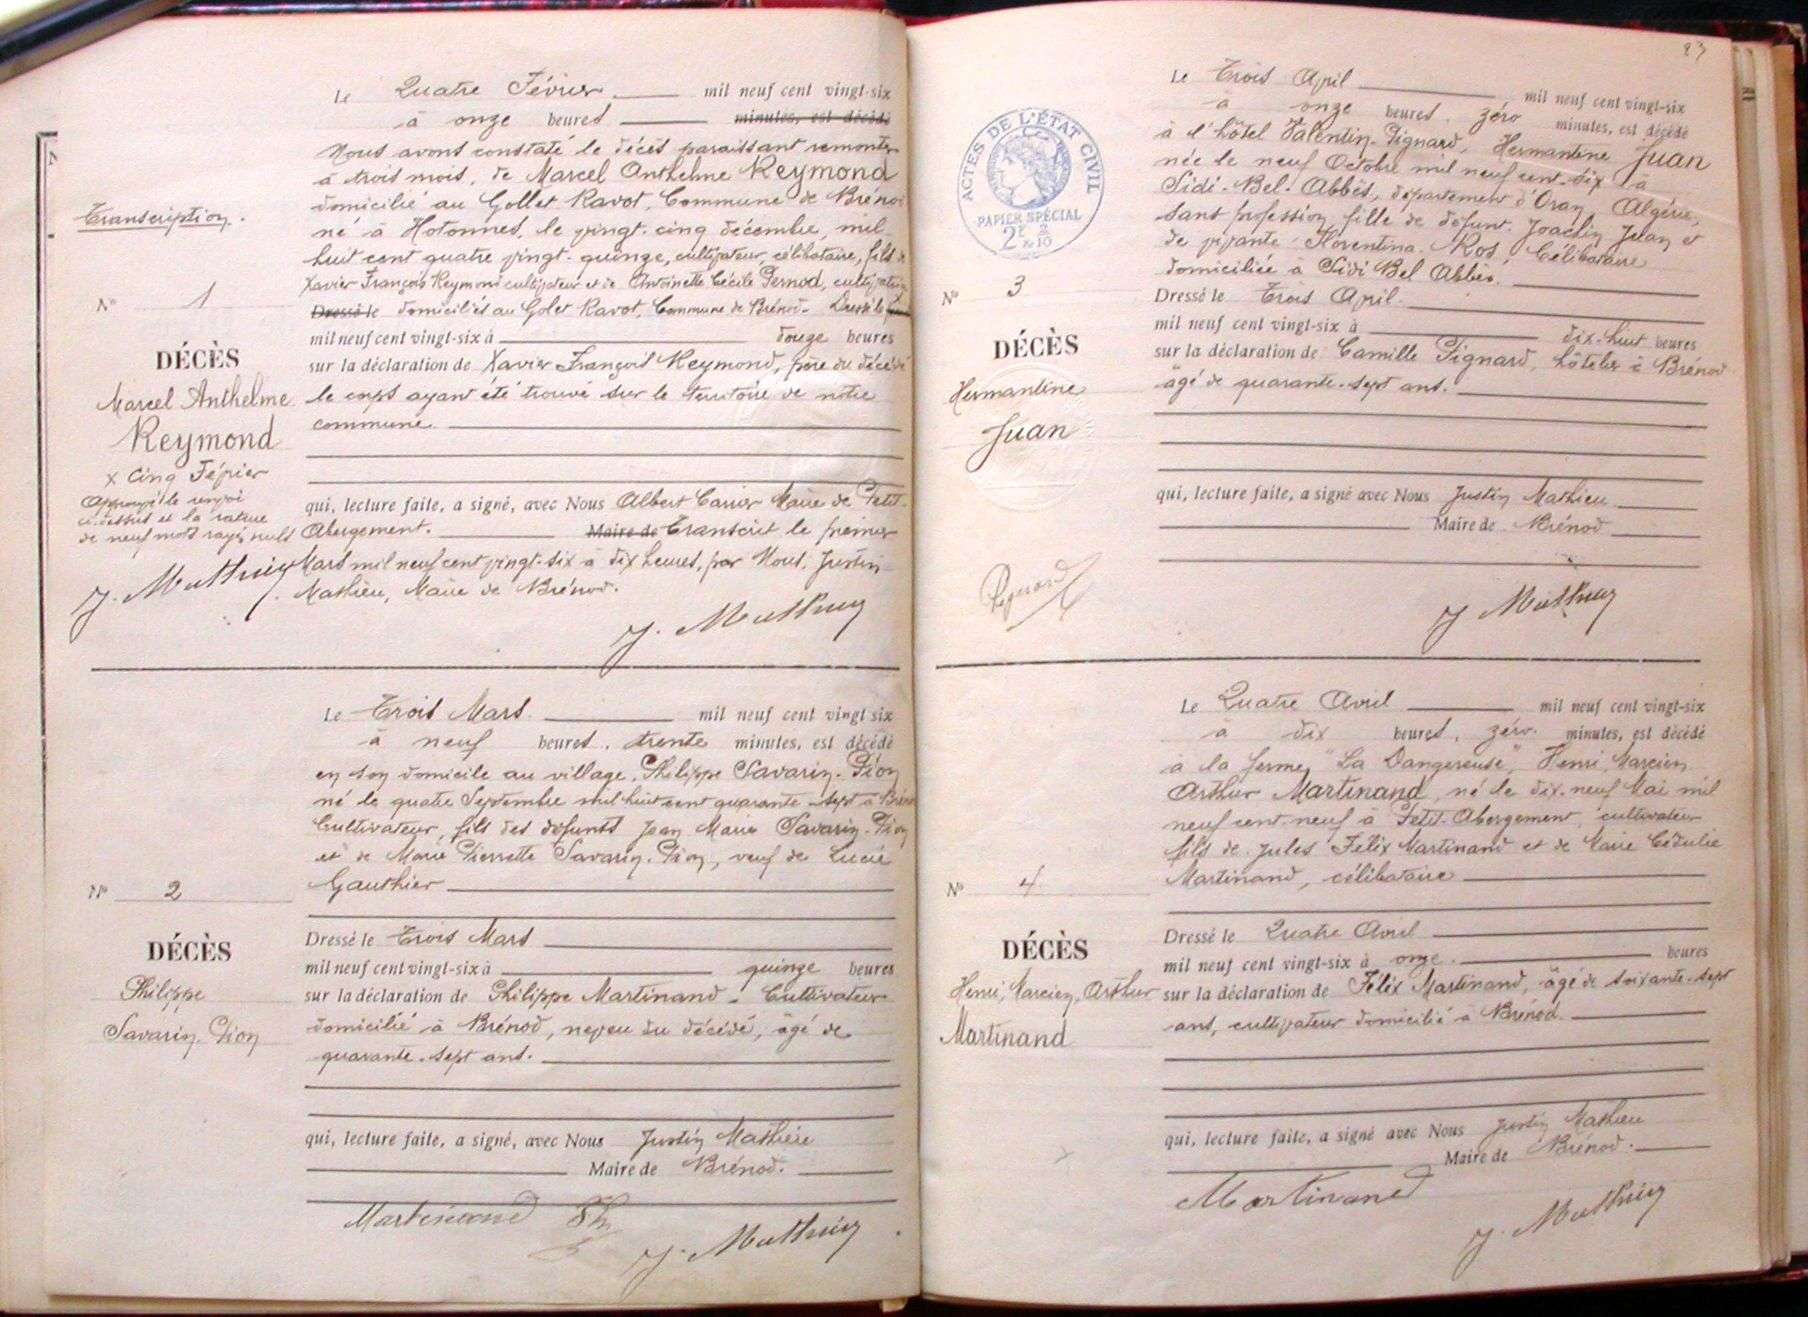 Le Quatre Février mil neuf cent vingt-six
à onze heures minutes, est décédé
Nous avons constaté le décès paraissant remonter
à trois mois, de Marcel Anthelme Reymond
domicilié au Gollet Ravot, Commune de Brénod
né à Hotonnes, le vingt-cinq décembre, mil
huit cent quatre vingt-quinze, cultivateur, célibataire, fils de
Xavier François Reymond cultivateur et de Antoinette Cécile Pernod,
Dressé le domiciliés au Golet Ravot, Commune de Brénod. Dressé le
mil neuf cent vingt-six à douze heures
sur la déclaration de Xavier François Reymond, père du décédé
le corps ayant été trouvé sur le territoire de notre
commune.
qui, lecture faite, a signé, avec Nous Albert Carrier Maire de Petit-
Abergement. Maire de Transcrit le premier
Mars mil neuf cent vingt-six à dix heures, par Nous, Justin
Mathieu, Maire de Brénod.
J. Mathieu
Transcription.
N° 1
DÉCÈS
Marcel Anthelme
Reymond
x Cinq Février
Approuvé le renvoi
ci-dessus et la rature
de neuf mots rayés nuls
J. Mathieu
Le Trois Mars mil neuf cent vingt six
à neuf heures, trente minutes, est décédé
en son domicile au village, Philippe Savarin-Pion
né le quatre Septembre mil huit cent quarante-sept à Brénod
Cultivateur, fils des défunts Jean Marie Savarin-Pion
et de Marie Pierrette Savarin-Pion, veuf de Lucie
Gauthier
N° 2
DÉCÈS
Philippe
Savarin-Pion
Dressé le Trois Mars
mil neuf cent vingt-six à quinze heures
sur la déclaration de Philippe Martinand - Cultivateur
domicilié à Brénod, neveu du décédé, âgé de
quarante-sept ans.
qui, lecture faite, a signé, avec Nous Justin Mathieu
Maire de Brénod.
Martinand Ph
J. Mathieu
23
Le Trois April mil neuf cent vingt-six
à onze heures, zéro minutes, est décédé
à l'hôtel Valentin-Pignard, Hermantine Juan
née le neuf Octobre mil neuf cent-dix à
Sidi-Bel-Abbès, département d'Oran Algérie,
sans profession, fille de défunt Joachin Juan et
de vivante Florentina Ros, Célibataire
domiciliée à Sidi Bel Abbès.
ACTES DE L'ÉTAT CIVIL
PAPIER SPÉCIAL
2F 2/10
N° 3
DÉCÈS
Hermantine
Juan
Dressé le Trois April.
mil neuf cent vingt-six à dix-huit heures
sur la déclaration de Camille Pignard, hôtelier à Brénod
âgé de quarante-sept ans.
qui, lecture faite, a signé avec Nous Justin Mathieu
Maire de Brénod
Pignard
J. Mathieu
Le Quatre Avril mil neuf cent vingt-six
à dix heures, zéro minutes, est décédé
à la ferme "La Dangereuse", Henri, Marcien
Arthur Martinand, né le dix-neuf Mai mil
neuf cent-neuf à Petit-Abergement, cultivateur
fils de Jules Félix Martinand et de Marie Cédulie
Martinand, célibataire
N° 4
DÉCÈS
Henri, Marcien, Arthur
Martinand
Dressé le Quatre Avril
mil neuf cent vingt-six à onze heures
sur la déclaration de Félix Martinand, âgé de soixante-sept
ans, cultivateur domicilié à Brénod.
qui, lecture faite, a signé avec Nous Justin Mathieu
Maire de Brénod.
Martinand
J. Mathieu